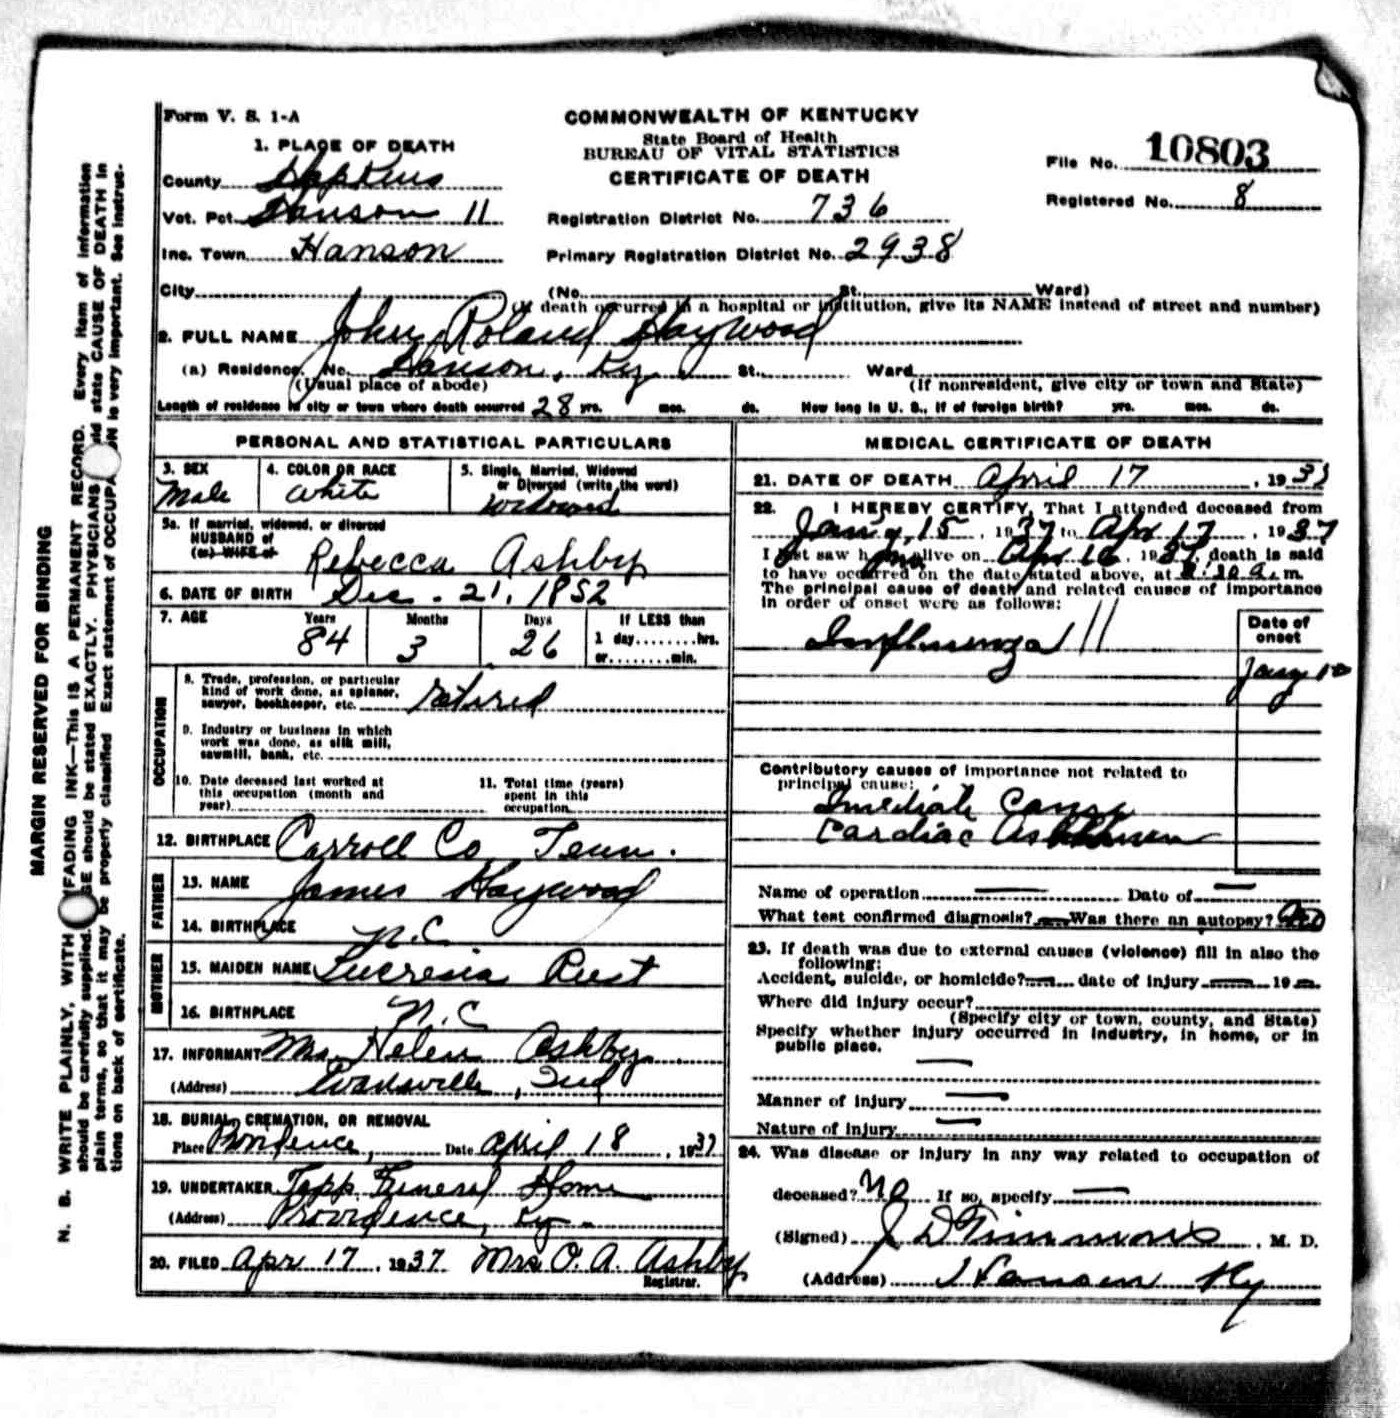 Form V. S. 1-A
COMMONWEALTH OF KENTUCKY
State Board of Health
BUREAU OF VITAL STATISTICS
CERTIFICATE OF DEATH
File No. 10803
Registered No. 8
1. PLACE OF DEATH
County Hopkins
Vot. Pct. Hanson 11
Registration District No. 736
Inc. Town Hanson
Primary Registration District No. 2938
City
(No. St., Ward)
(If death occurred in a hospital or institution, give its NAME instead of street and number)
2. FULL NAME John Roland Haywood
(a) Residence. No. Hanson, Ky St., Ward
(Usual place of abode)
(If nonresident, give city or town and State)
Length of residence in city or town where death occurred 28 yrs. mos. ds. How long in U. S., if of foreign birth? yrs. mos. ds.
PERSONAL AND STATISTICAL PARTICULARS
3. SEX
Male
4. COLOR OR RACE
White
5. Single, Married, Widowed
or Divorced (write the word)
Widowed
5a. If married, widowed, or divorced
HUSBAND of
(or) WIFE of
Rebecca Ashby
6. DATE OF BIRTH Dec. 21, 1852
7. AGE
Years 84
Months 3
Days 26
If LESS than
1 day hrs.
or min.
OCCUPATION
8. Trade, profession, or particular
kind of work done, as spinner,
sawyer, bookkeeper, etc. retired
9. Industry or business in which
work was done, as silk mill,
sawmill, bank, etc.
10. Date deceased last worked at
this occupation (month and
year)
11. Total time (years)
spent in this
occupation
12. BIRTHPLACE Carroll Co Tenn.
FATHER
13. NAME James Haywood
14. BIRTHPLACE N.C
MOTHER
15. MAIDEN NAME Lucresia Rust
16. BIRTHPLACE N.C
17. INFORMANT Mrs. Helen Ashby
(Address) Evansville, Ind
18. BURIAL, CREMATION, OR REMOVAL
Place Providence, Date April 18, 1937
19. UNDERTAKER Tapp Funeral Home
(Address) Providence, Ky.
20. FILED Apr 17, 1937 Mrs O. A. Ashby
Registrar.
MEDICAL CERTIFICATE OF DEATH
21. DATE OF DEATH April 17, 193
22. I HEREBY CERTIFY, That I attended deceased from
Jany, 15, 1937 to Apr 17, 1937
I last saw h alive on Apr 16, 1937, death is said
to have occurred on the date stated above, at a. m.
The principal cause of death and related causes of importance
in order of onset were as follows:
Date of
onset
Influenza 11
Jany 10
Contributory causes of importance not related to
principal cause:
Imediate Cause
Cardiac
Name of operation Date of
What test confirmed diagnosis? Was there an autopsy? No
23. If death was due to external causes (violence) fill in also the
following:
Accident, suicide, or homicide? date of injury 19
Where did injury occur?
(Specify city or town, county, and State)
Specify whether injury occurred in industry, in home, or in
public place.
Manner of injury
Nature of injury
24. Was disease or injury in any way related to occupation of
deceased? No If so, specify
(Signed) J D Timmons, M. D.
(Address) Hanson Ky
MARGIN RESERVED FOR BINDING
N. B. WRITE PLAINLY, WITH UNFADING INK—THIS IS A PERMANENT RECORD. Every item of information
should be carefully supplied. AGE should be stated EXACTLY. PHYSICIANS should state CAUSE OF DEATH in
plain terms, so that it may be properly classified. Exact statement of OCCUPATION is very important. See instruc-
tions on back of certificate.